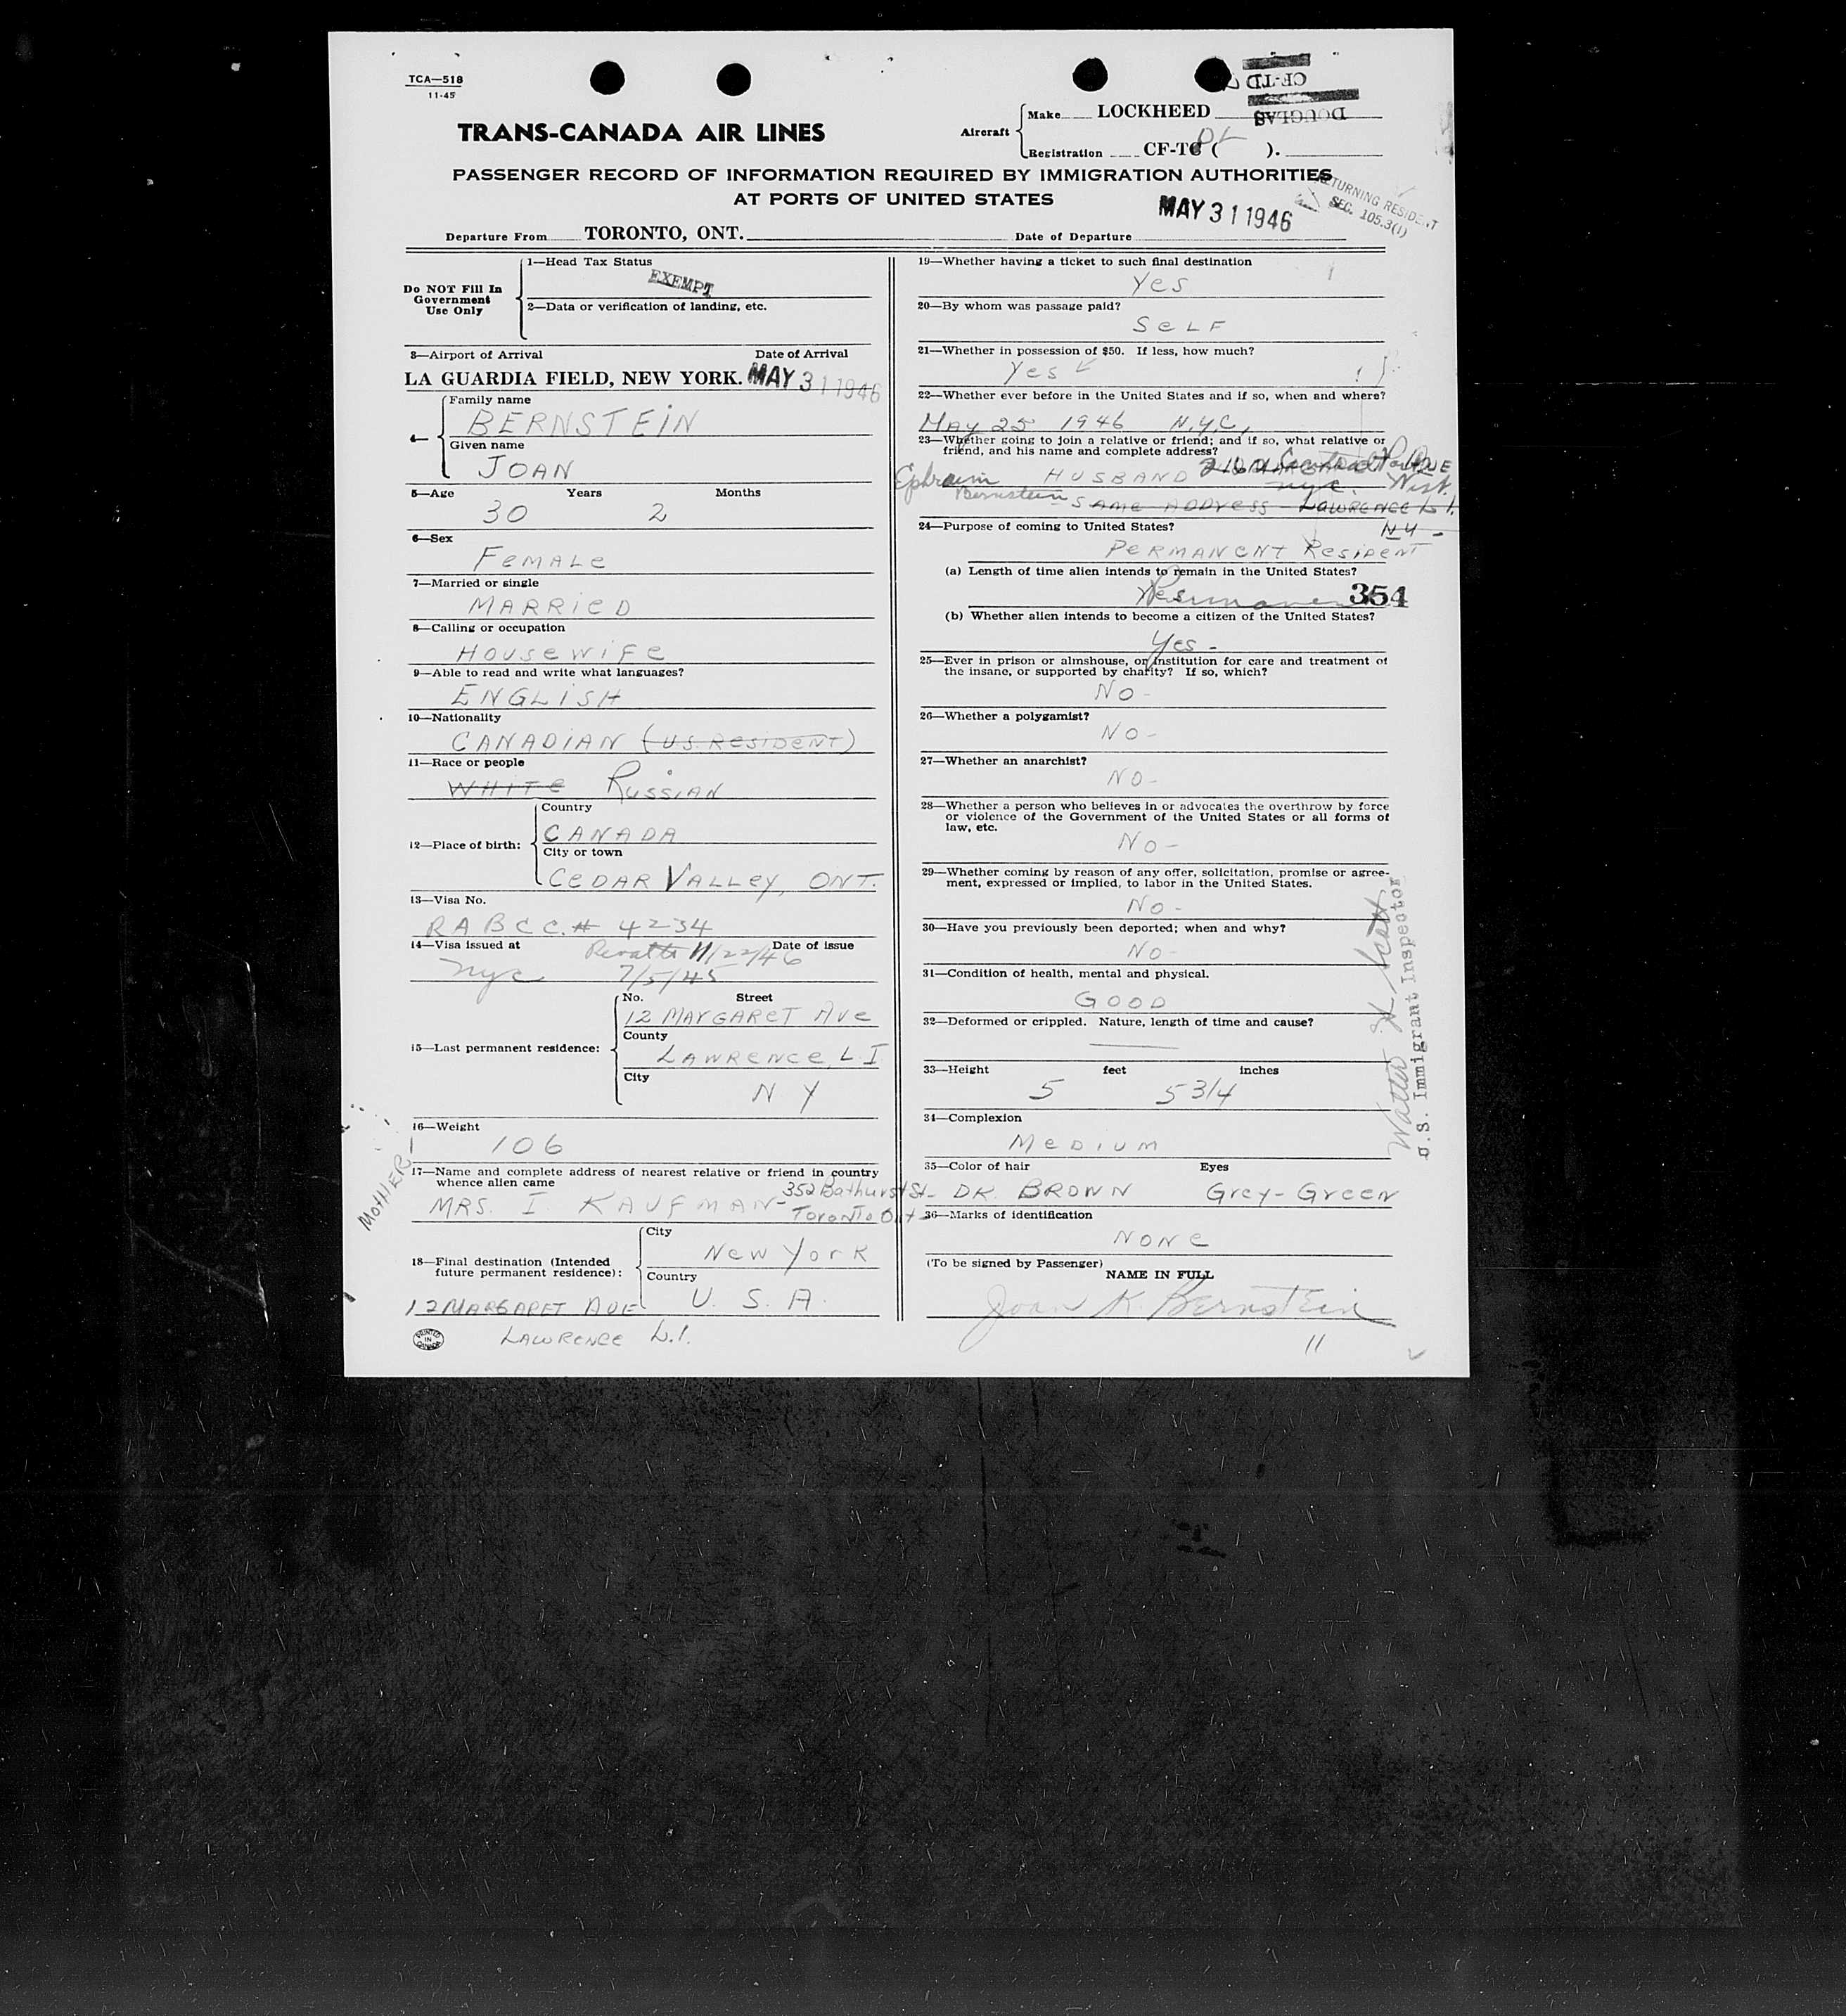 TCA—518
11-45
CF-TD
DOUGLAS
TRANS-CANADA AIR LINES
Aircraft
Make LOCKHEED
Registration CF-TC ( ).
PASSENGER RECORD OF INFORMATION REQUIRED BY IMMIGRATION AUTHORITIES
AT PORTS OF UNITED STATES
RETURNING RESIDENT
SEC. 105.3(1)
MAY 31 1946
Departure From TORONTO, ONT. Date of Departure
Do NOT Fill In
Government
Use Only
1—Head Tax Status
EXEMPT
2—Data or verification of landing, etc.
3—Airport of Arrival Date of Arrival
LA GUARDIA FIELD, NEW YORK. MAY 31 1946
4—
Family name
BERNSTEIN
Given name
JOAN
5—Age Years Months
30 2
6—Sex
FEMALE
7—Married or single
MARRIED
8—Calling or occupation
HOUSEWIFE
9—Able to read and write what languages?
ENGLISH
10—Nationality
CANADIAN (U.S. RESIDENT)
11—Race or people
WHITE RUSSIAN
12—Place of birth:
Country
CANADA
City or town
CEDAR VALLEY, ONT.
13—Visa No.
RABCC.# 4234
14—Visa issued at Date of issue
11/22/46
nyc 7/5/45
15—Last permanent residence:
No. Street
12 MARGARET AVE
County
LAWRENCE, L.I
City
N Y
16—Weight
106
17—Name and complete address of nearest relative or friend in country
whence alien came
MOTHER
MRS. I. KAUFMAN - 352 Bathurst St-
Toronto Ont -
18—Final destination (Intended
future permanent residence):
City
NEW YORK
Country
U. S. A.
12 MARGARET AVE
LAWRENCE L.I.
PRINTED
IN
CANADA
19—Whether having a ticket to such final destination
Yes
20—By whom was passage paid?
SELF
21—Whether in possession of $50. If less, how much?
Yes
22—Whether ever before in the United States and if so, when and where?
MAY 25 1946 N.Y.C,
23—Whether going to join a relative or friend; and if so, what relative or
friend, and his name and complete address?
Ephraim HUSBAND Central Park
Bernstein nyc. West.
SAME ADDRESS LAWRENCE L.I.
NY -
24—Purpose of coming to United States?
PERMANENT RESIDENT
(a) Length of time alien intends to remain in the United States?
Yes Permanent 354
(b) Whether alien intends to become a citizen of the United States?
Yes -
25—Ever in prison or almshouse, or institution for care and treatment of
the insane, or supported by charity? If so, which?
NO -
26—Whether a polygamist?
NO -
27—Whether an anarchist?
NO -
28—Whether a person who believes in or advocates the overthrow by force
or violence of the Government of the United States or all forms of
law, etc.
NO -
29—Whether coming by reason of any offer, solicitation, promise or agree-
ment, expressed or implied, to labor in the United States.
NO -
30—Have you previously been deported; when and why?
NO -
31—Condition of health, mental and physical.
GOOD
32—Deformed or crippled. Nature, length of time and cause?
33—Height feet inches
5 5 3/4
34—Complexion
MEDIUM
35—Color of hair Eyes
DK. BROWN Grey-Green
36—Marks of identification
NONE
(To be signed by Passenger)
NAME IN FULL
Joan K. Bernstein
11
Walter H Scott
U.S. Immigrant Inspector